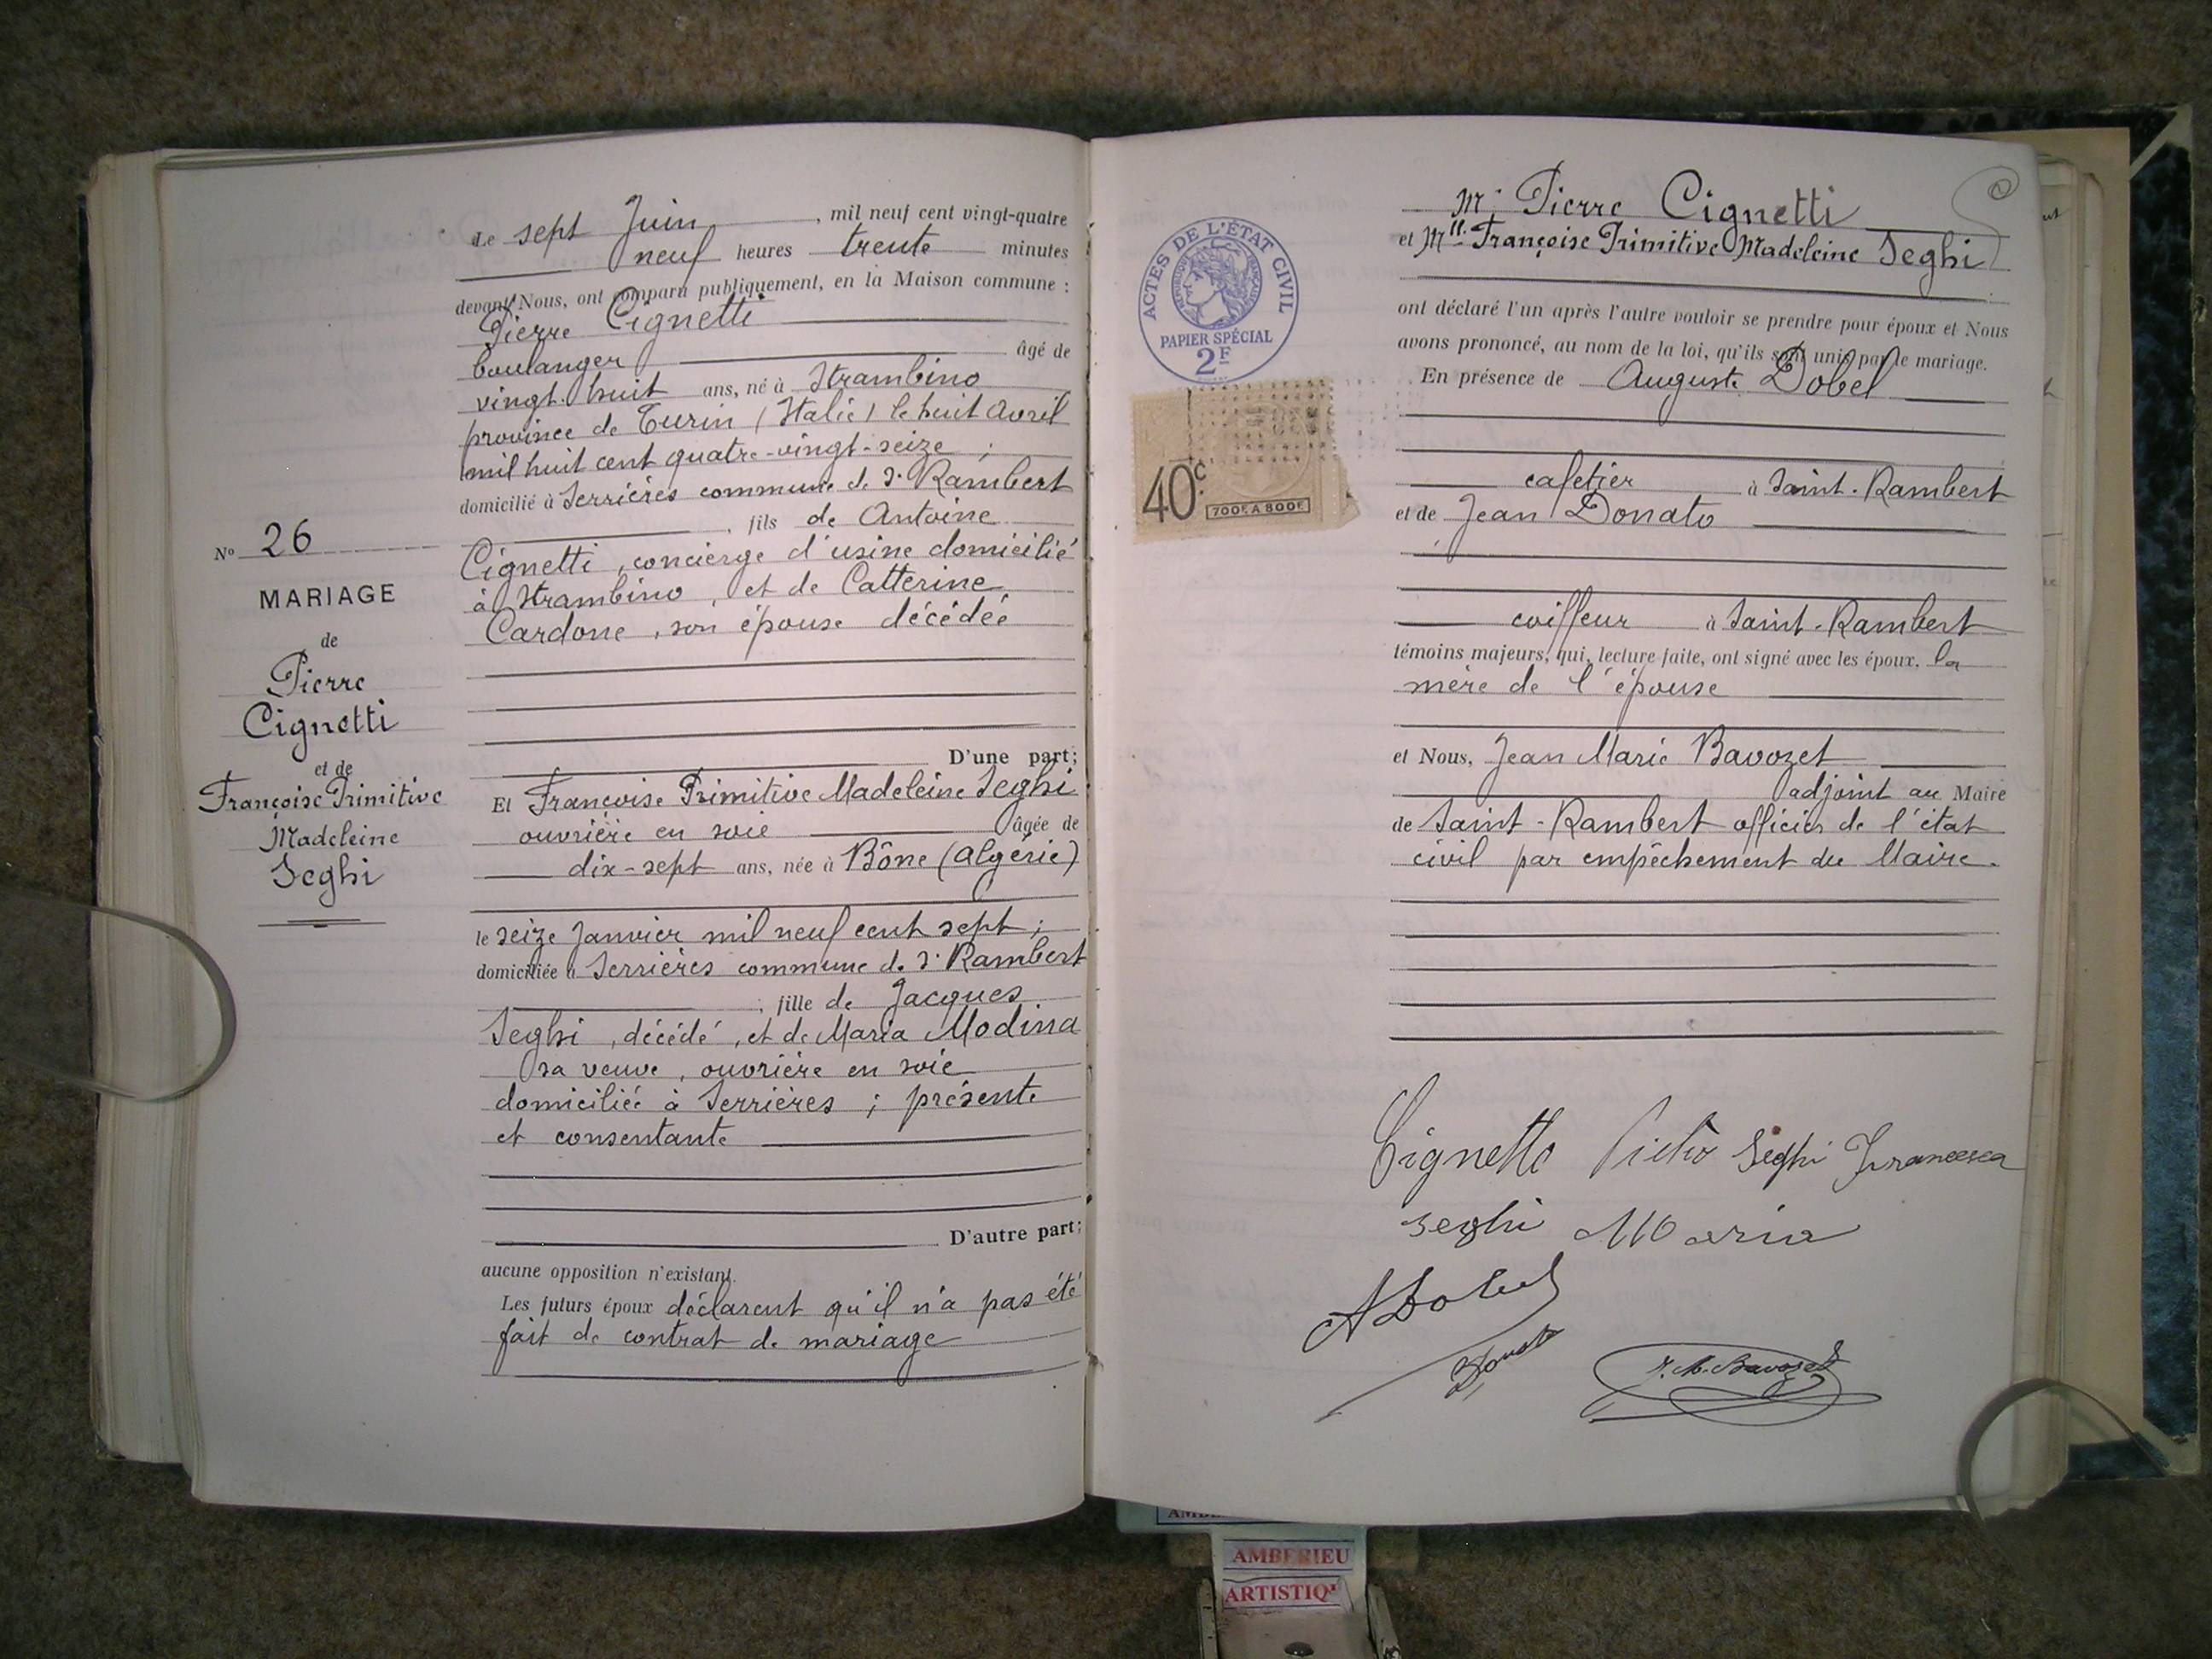 Le sept Juin, mil neuf cent vingt-quatre
neuf heures trente minutes
devant Nous, ont comparu publiquement, en la Maison commune :
Pierre Cignetti
boulanger âgé de
vingt-huit ans, né à Strambino
province de Turin (Italie) le huit avril
mil huit cent quatre-vingt-seize ;
domicilié à Serrières commune de St Rambert
, fils de Antoine
Cignetti, concierge d'usine domicilié
à Strambino, et de Catterine
Cardone, son épouse décédée
D'une part;
Et Françoise Primitive Madeleine Seghi
ouvrière en soie âgée de
dix-sept ans, née à Bône (Algérie)
le seize Janvier mil neuf cent sept ;
domiciliée à Serrières commune de St Rambert
; fille de Jacques
Seghi, décédé, et de Maria Modina
sa veuve, ouvrière en soie
domiciliée à Serrières ; présente
et consentante
D'autre part;
aucune opposition n'existant.
Les futurs époux déclarent qu'il n'a pas été
fait de contrat de mariage
No 26
MARIAGE
de
Pierre
Cignetti
et de
Françoise Primitive
Madeleine
Seghi
ACTES DE L'ÉTAT CIVIL
RÉPUBLIQUE FRANÇAISE
PAPIER SPÉCIAL
2F
40c
700F A 800F
Mr Pierre Cignetti
et Mlle Françoise Primitive Madeleine Seghi
ont déclaré l'un après l'autre vouloir se prendre pour époux et Nous
avons prononcé, au nom de la loi, qu'ils sont unis par le mariage.
En présence de Auguste Dobel
cafetier à Saint-Rambert
et de Jean Donato
coiffeur à Saint-Rambert
témoins majeurs, qui, lecture faite, ont signé avec les époux. la
mère de l'épouse
et Nous, Jean Marie Bavozet
adjoint au Maire
de Saint-Rambert officier de l'état
civil par empêchement du Maire.
Cignetto Pietro Seghi Francesca
Seghi Maria
A Dobel
Donato
J. M. Bavozet
AMBERIEU
ARTISTIQ